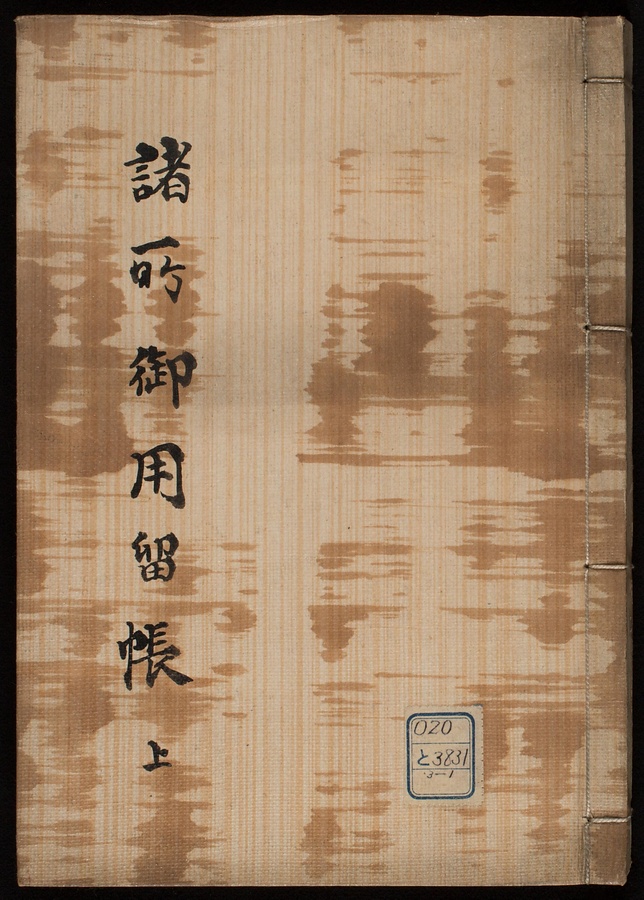 諸所御用留帳 上
020
と3831
3-1